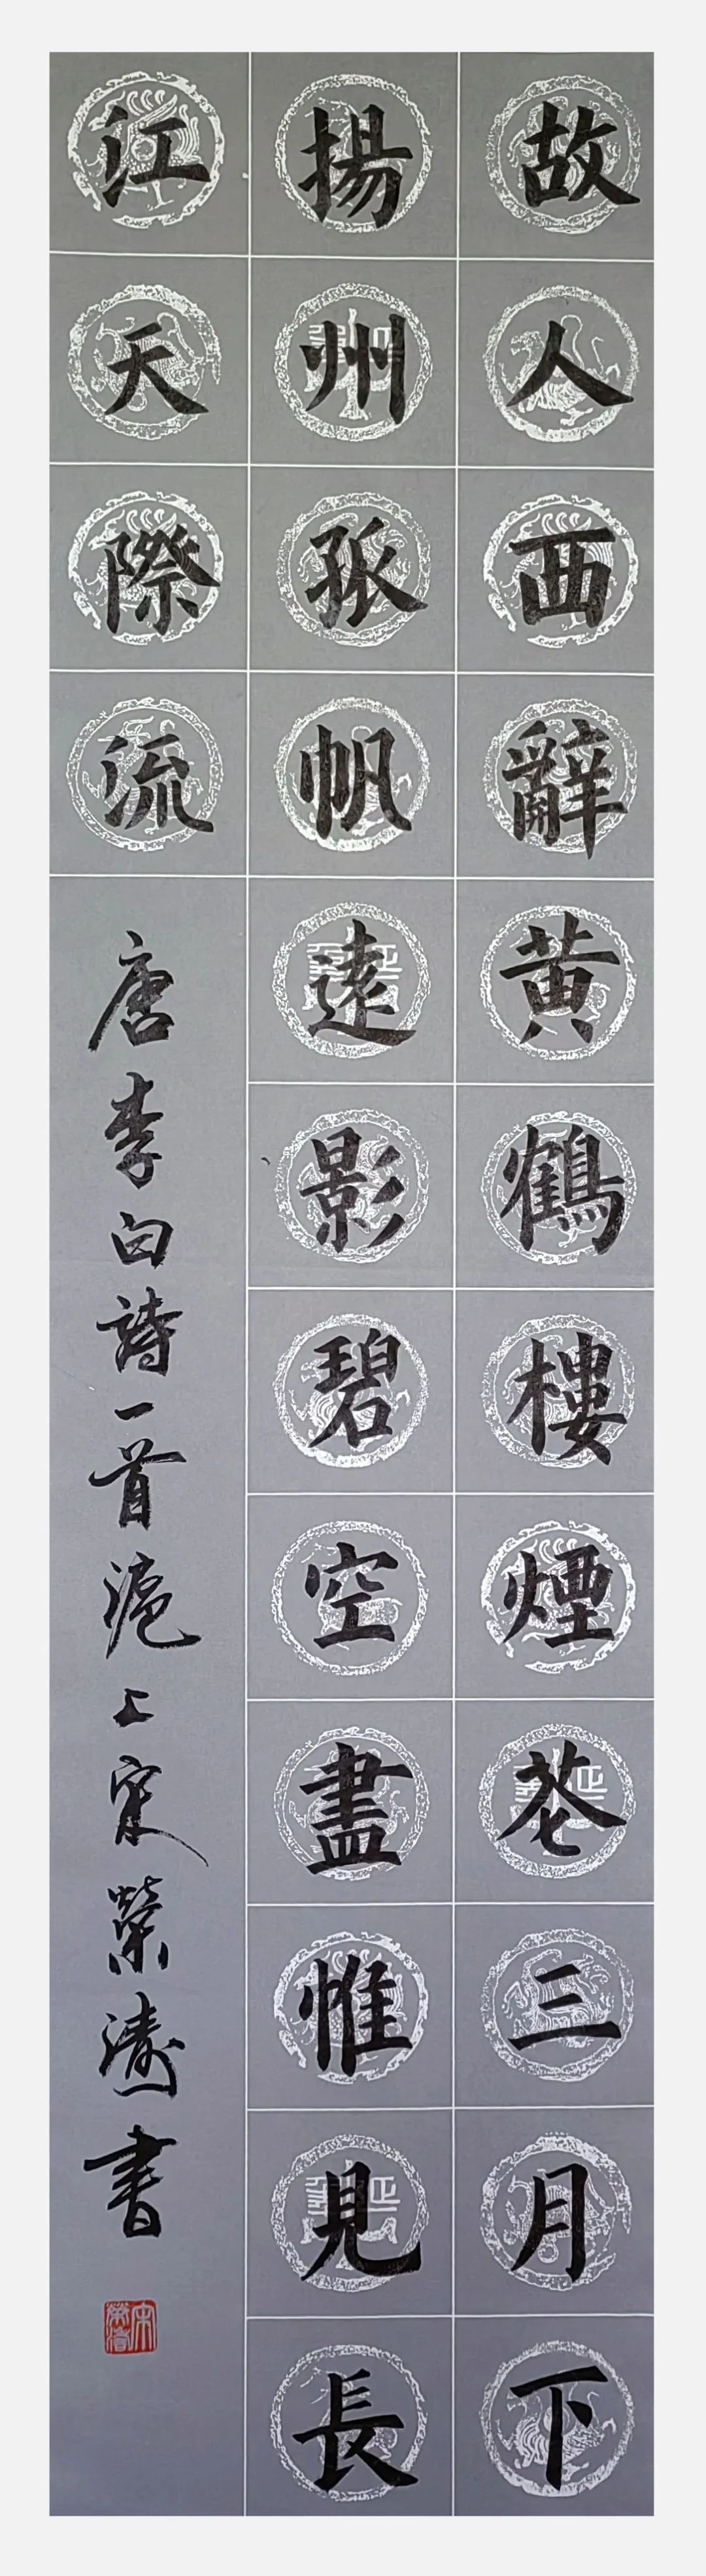 故人西辭黄鶴樓煙花三月下
揚州孤帆遠影碧空盡惟見長
江天際流
唐李白詩一首滬上宋榮濤書
宋榮濤